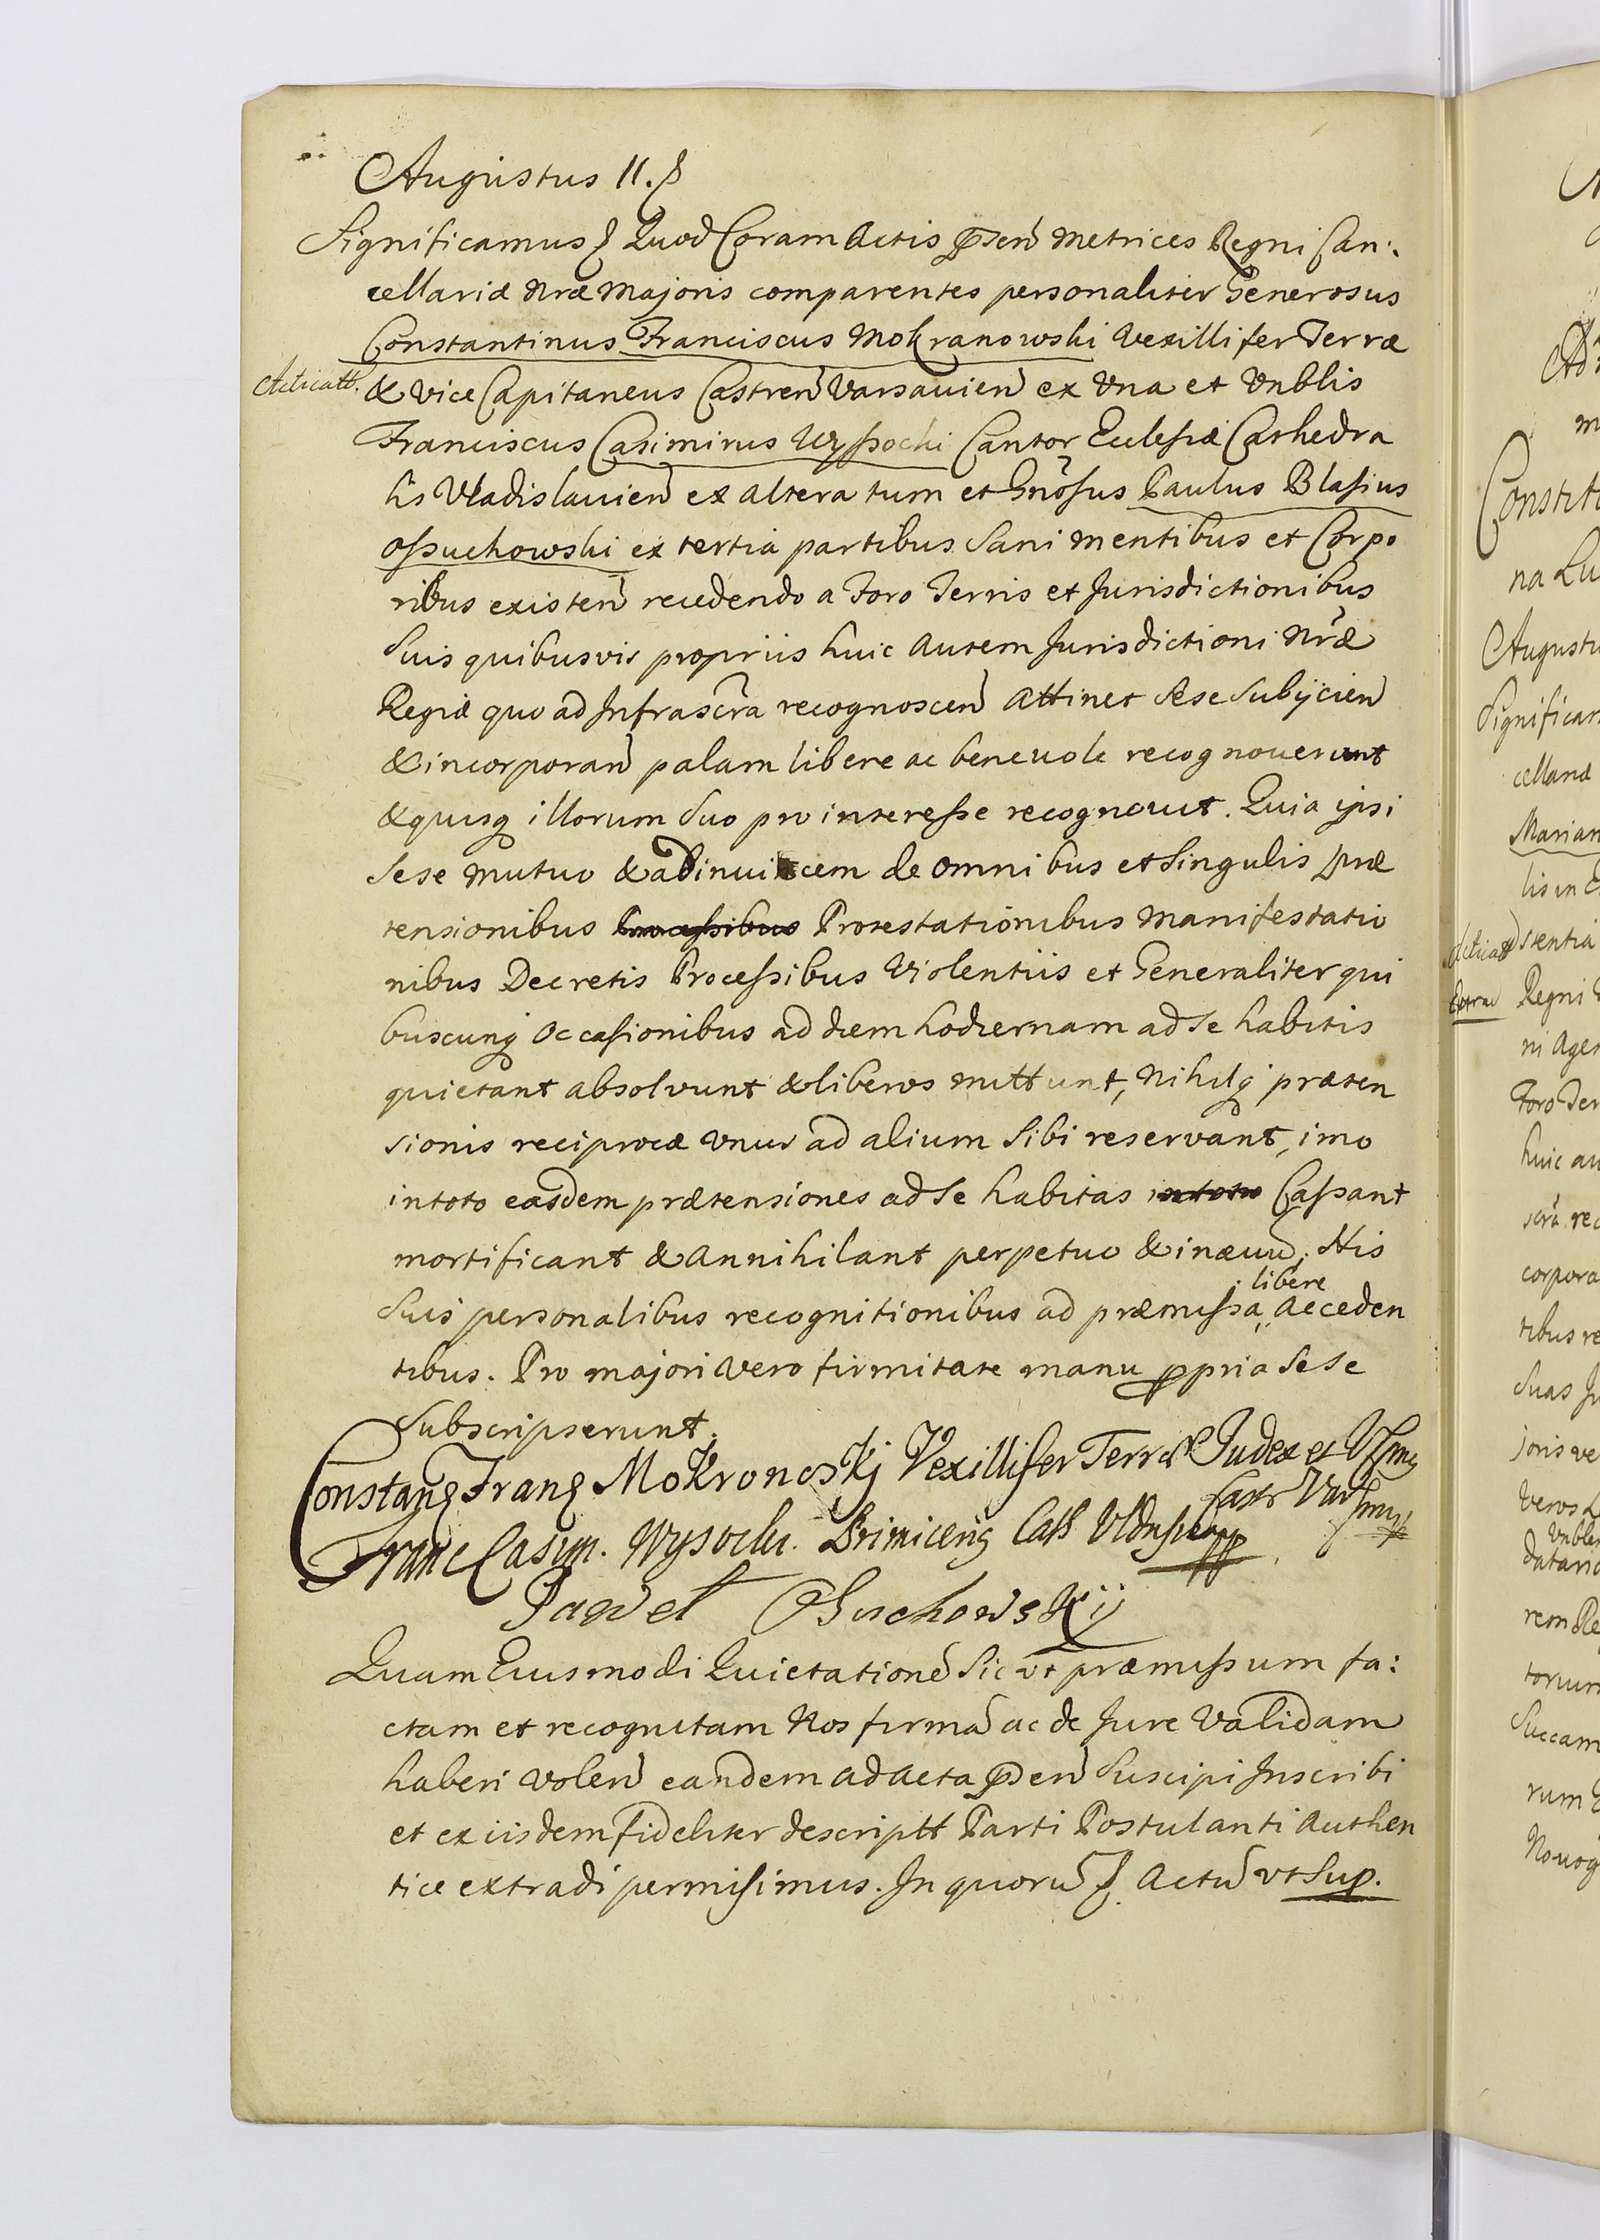 Augustus II. &
Significamus & Quod Coram Actis pñsen Metrices Regni Can:
cellariæ Nræ Majoris comparentes personaliter Generosus
Constantinus Franciscus Mokranowski Vexillifer Terræ
Acticatt.
& Vice Capitaneus Castren Varsavien ex Una et Vnblis
Franciscus Casimirus Wyssocki Cantor Eclesiæ Cathedra
lis Vladislavien ex altera tum et Gnosus Paulus Blasius
Ossuchowski ex tertia partibus Sani mentibus et Corpo
ribus existen recedendo a Foro Terris et Jurisdictionibus
Suis quibusvis propriis huic autem Jurisdictioni Nræ
Regiæ quo ad Infrascra recognoscen attinet Sese Subijcien
& incorporan palam libere ac benevole recognoverunt
& quisq illorum Suo pro interesse recognovit. Quia ipsi
Sese mutuo & adinvicem de omnibus et Singulis præ
tensionibus Processibus Protestationibus Manifestatio
nibus Decretis Processibus Violentiis et Generaliter qui
buscunq Occasionibus ad diem hodiernam ad Se habitis
quietant absolvunt & liberos mittunt, Nihilq præten
sionis reciprocæ Vnus ad alium Sibi reservant, imo
in toto easdem prætensiones ad Se habitas in toto Cassant
mortificant & Annihilant perpetuo & in ævu. His
Suis personalibus recognitionibus ad præmissa libere acceden
tibus. Pro majori vero firmitate manu ppria Sese
Subscripserunt.
Constang Frang Mokronoskj Vexillifer Terræ Judex et
Castr
Franc Casim. Wysocki. Primiceriq Cath
Pawel Osuchowskij
Quam Eiusmodi Quietatione Sic vt præmissum fa:
ctam et recognitam Nos firma ac de Jure Validam
haberi Volen eandem ad Acta pñsen Suscipi Inscribi
et ex iisdem fideliter descriptt Parti Postulanti Authen
tice extradi permisimus. In quoru & Actu vt Sup.